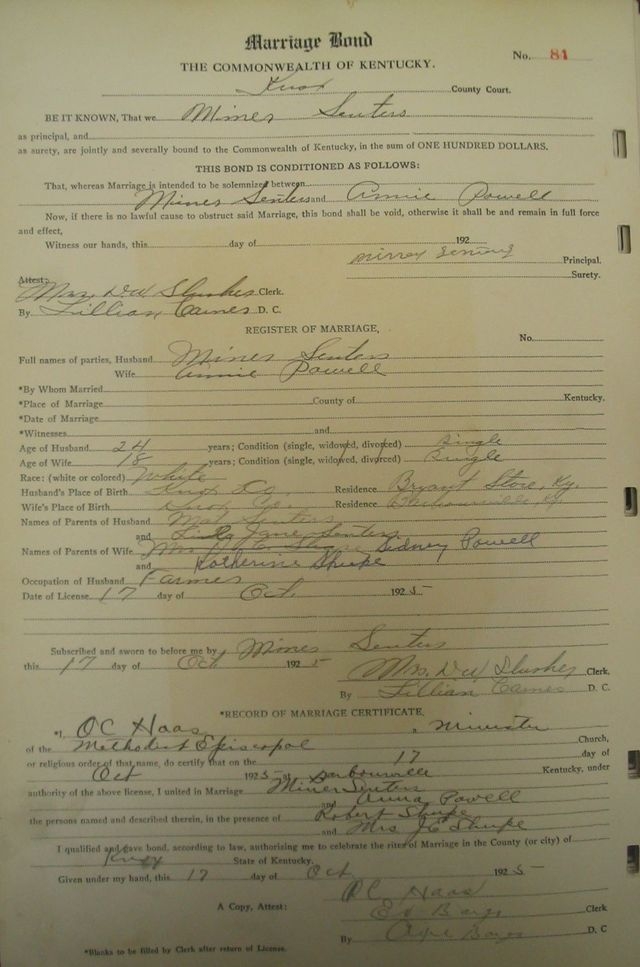 Marriage Bond
THE COMMONWEALTH OF KENTUCKY.
No. 81
Knox County Court.
BE IT KNOWN, That we Mines Senters
as principal, and
as surety, are jointly and severally bound to the Commonwealth of Kentucky, in the sum of ONE HUNDRED DOLLARS.
THIS BOND IS CONDITIONED AS FOLLOWS:
That, whereas Marriage is intended to be solemnized between
Mines Senters and Annie Powell
Now, if there is no lawful cause to obstruct said Marriage, this bond shall be void, otherwise it shall be and remain in full force
and effect,
Witness our hands, this day of 192
Principal.
Surety.
Attest:
Mrs. D. W. Slusher Clerk.
By Lillian Carnes D. C.
REGISTER OF MARRIAGE,
No.
Full names of parties, Husband Mines Senters
Wife Annie Powell
*By Whom Married
*Place of Marriage County of Kentucky.
*Date of Marriage
*Witnesses and
Age of Husband 24 years; Condition (single, widowed, divorced) Single
Age of Wife 18 years; Condition (single, widowed, divorced) Single
Race: (white or colored) White
Husband's Place of Birth Knox Co. Residence Bryant Store, Ky.
Wife's Place of Birth Knox Co. Residence Barbourville, Ky.
Names of Parents of Husband Senters
and Jane Senters
Names of Parents of Wife Sidney Powell
and Katherine Shupe
Occupation of Husband Farmer
Date of License 17 day of Oct. 1925
Subscribed and sworn to before me by Mines Senters
this 17 day of Oct 1925
Mrs. D. W. Slusher Clerk,
By Lillian Carnes D. C.
*RECORD OF MARRIAGE CERTIFICATE.
*I, O C Haas, a Minister
of the Methodist Episcopal Church,
or religious order of that name, do certify that on the 17 day of
Oct 1925 at Barbourville Kentucky, under
authority of the above license, I united in Marriage Mines Senters
and Anna Powell
the persons named and described therein, in the presence of Robert Shupe
and Mrs J E Shupe
I qualified and gave bond, according to law, authorizing me to celebrate the rites of Marriage in the County (or city) of
Knox State of Kentucky.
Given under my hand, this 17 day of Oct 1925
O C Haas
A Copy, Attest: Clerk
By D. C
*Blanks to be filled by Clerk after return of License.